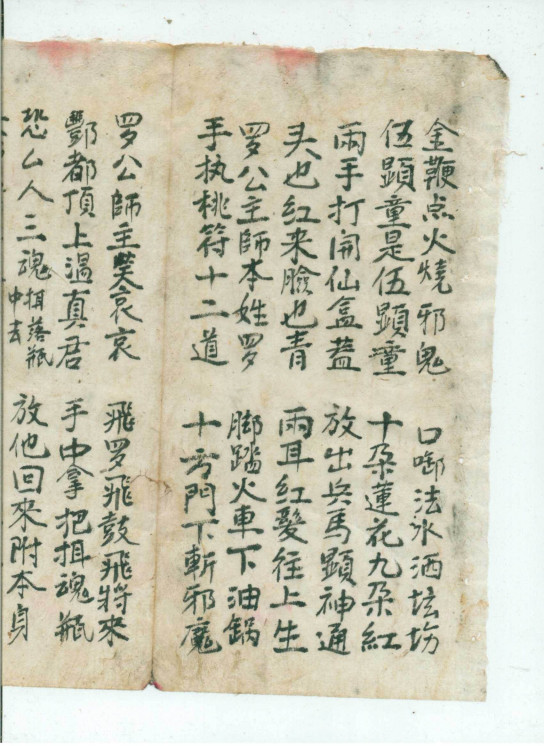 金鞭点火燒邪鬼 口啣法水洒坛场
伍顕童是伍顕童 十朶蓮花九朶紅
兩手打開仙盒盖 放出兵馬顕神通
头也紅来臉也青 兩耳紅髮往上生
罗公主師本姓罗 脚踏火車下油鍋
手执桃符十二道 十方門下斬邪魔
罗公師主哭哀哀 飛罗飛鼓飛将来
酆都頂上温真君 手中拿把揖魂瓶
恐厶人三魂揖落瓶中去 放他回來附本身